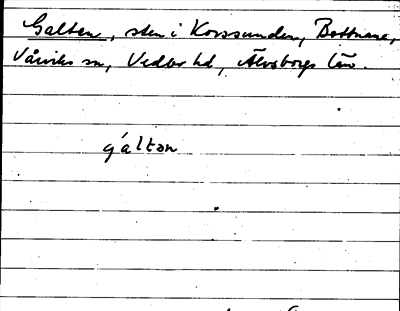 Galten, sten i Korssunden, Bottnane,
Vårviks sn, Vedbo hd, Älvsborgs län.
gáltən